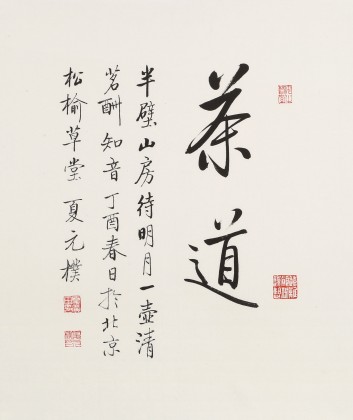 茶道
半壁山房待明月一壶清
茗酬知音丁酉春日於北京
松榆草堂夏元樸